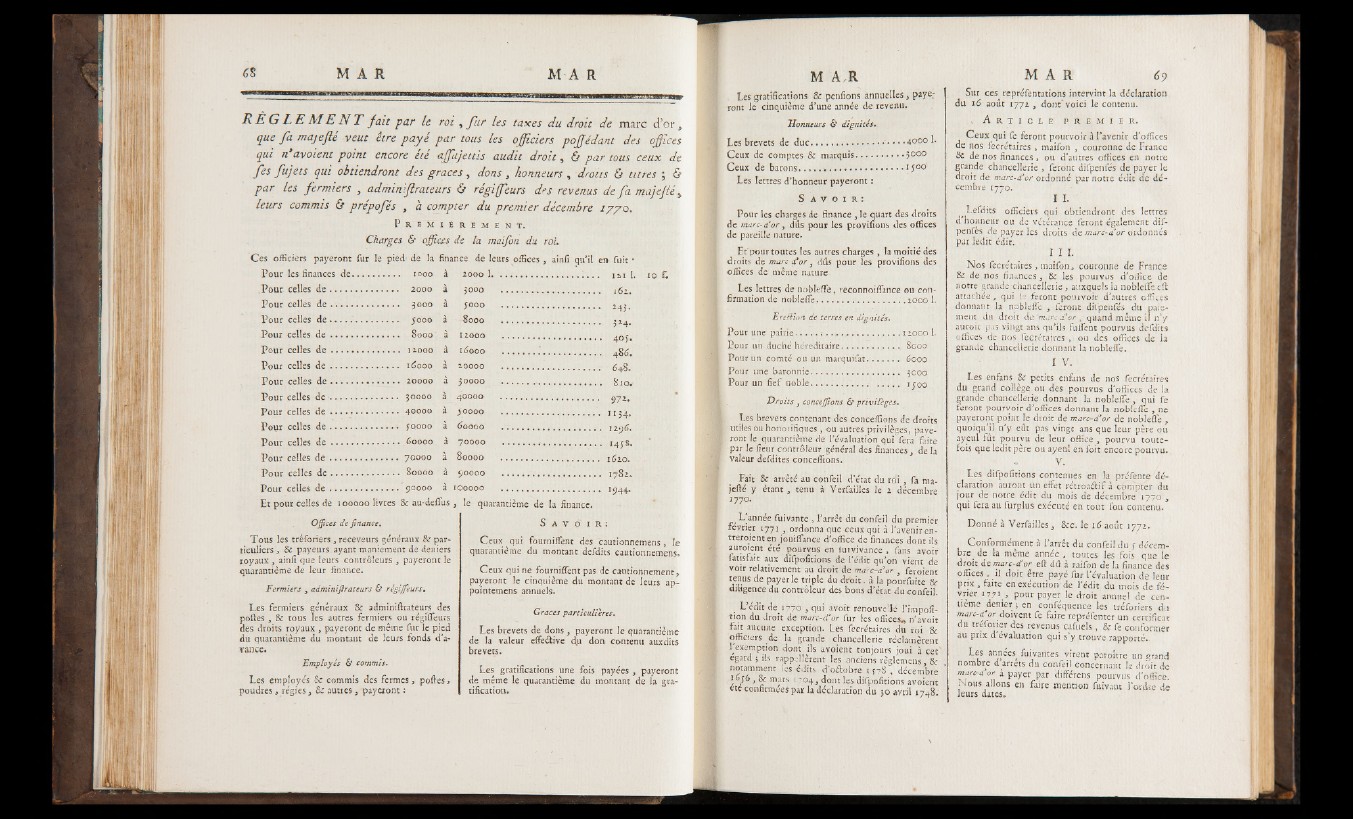 68 MAR MAR
RÉGLEMENT fait par le roi, sur les taxes du droit de marc d'or,
que sa majesté veut être payé par tous les officiers possédant des offices
qui n'avoient point encore été assujettis audit droit, & par tous ceux de
ses sujets qui obtiendront des graces, dons, honneurs, droits & titres; &
par les fermiers, administrateurs & régisseurs des revenus de sa majesté,
leurs commis & préposés, à compter du premier décembre 1770.
PREMIEREMENT.
Charges & offices de la maison du roi.
Ces officiers payeront sur le pied de la finance de leurs offices, ainsi qu'il en suit.
Pour les finances de.......... 1000 à 2000 l. .................... 121 l. 10 s.
Pour celles de .............. 2000 à 3000 .................... 162.
Pour celles de .............. 3000 à 5000 .................... 243.
Pour celles de .............. 5000 à 8000 .................... 324.
Pour celles de .............. 8000 à 12000 .................... 405.
Pour celles de .............. 12000 à 16000 .................... 486.
Pour celles de .............. 16000 à 20000 .................... 648.
Pour celles de .............. 20000 à 30000 .................... 810.
Pour celles de .............. 30000 à 40000 .................... 972.
Pour celles de .............. 40000 à 50000 .................... 1134.
Pour celles de .............. 50000 à 60000 .................... 1296.
Pour celles de .............. 60000 à 70000 .................... 1458.
Pour celles de .............. 70000 à 80000 .................... 1620.
Pour celles de .............. 80000 à 90000 .................... 1782.
Pour celles de .............. 90000 à 100000 .................... 1944.
Et pour celles de 100000 livres & au-dessus, le quarantième de la finance.
Offices de finance.
Tous les trésoriers, receveurs généraux & par-
ticuliers, & payeurs ayant maniement de deniers
royaux, ainsi que leurs contrôleurs, payeront le
quarantième de leur finance.
Fermiers, administrateurs & régisseurs.
Les fermiers généraux & administrateurs des
postes, & tous les autres fermiers ou régisseurs
des droits royaux, payeront de même sur le pied
du quarantième du montant de leurs fonds d'a-
vance.
Employés & commis.
Les employés & commis des fermes, postes,
poudres, régies, & autres, payeront :
SAVOIR:
Ceux qui fournissent des cautionnemens, le
quarantième du montant desdits cautionnemens.
Ceux qui ne fournissent pas de cautionnement,
payeront le cinquième du montant de leurs ap-
pointemens annuels.
Graces particulières.
Les brevets de dons, payeront le quarantième
de la valeur effective du don contenu auxdits
brevets.
Les gratifications une fois payées, payeront
de même le quarantième du montant de la gra-
tification.
MAR MAR 69
Les gratifications & pensions annuelles, paye-
ront le cinquième d'une année de revenu.
Honneurs & dignités.
Les brevets de duc...................4000 l.
Ceux de comptes & marquis..........3000
Ceux de barons.....................1500
Les lettres d'honneur payeront :
SAVOIR:
Pour les charges de finance, le quart des droits
de marc-d'or, dûs pour les provisions des offices
de pareille nature.
Et pour toutes les autres charges, la moitié des
droits de marc d'or, dûs pour les provisions des
offices de même nature
Les lettres de noblesse, reconnoissance ou con-
firmation de noblesse..................2000 l.
Erection de terres en dignités.
Pour une pairie.....................12000 l.
Pour un duché héréditaire............ 8000
Pour un comté ou un marquisat....... 6000
Pour une baronnie.................. 3000
Pour un fief noble............ ..... 1500
Droits, concessions & privilèges.
Les brevets contenant des concessions de droits
utiles ou honorifiques, ou autres privilèges, paye-
ront le quarantième de l'évaluation qui sera faite
par le sieur contrôleur général des finances, de la
valeur desdites concessions.
Fait & arrêté au conseil d'état du roi, sa ma-
jesté y étant, tenu à Versailles le 2 décembre
1770.
L'année suivante, l'arrêt du conseil du premier
février 1771, ordonna que ceux qui à l'avenir en-
treroient en jouissance d'office de finances dont ils
auroient été pourvus en survivance, sans avoir
satisfait aux dispositions de l'édit qu'on vient de
voir relativement au droit de marc-d'or, seroient
tenus de payer le triple du droit, à la poursuite &
diligence du contrôleur des bons d'état du conseil.
L'édit de 1770, qui avoit renouvelé l'imposi-
tion du droit de marc-d'or sur les offices, n'avoit
fait aucune exception. Les secrétaires du roi &
officiers de la grande chancellerie réclamèrent
l'exemption dont ils avoient toujours joui à cet
égard; ils rappellèrent les anciens règlemens, &
notamment les édits d'octobre 1578, décembre
1656, & mars 1704, dont les dispositions avoient
été confirmées par la déclaration du 30 avril 1748.
Sur ces représentations intervint la déclaration
du 16 août 1772, dont voici le contenu.
ARTICLE PREMIER.
Ceux qui se feront pourvoir à l'avenir d'offices
de nos secrétaires, maison, couronne de France
& de nos finances, ou d'autres offices en notre
grande chancellerie, seront dispensés de payer le
droit de marc-d'or ordonné par notre édit de dé-
cembre 1770.
II.
Lesdits officiers qui obtiendront des lettres
d'honneur ou de vétérance seront également dis-
pensés de payer les droits de marc-d'or ordonnés
par ledit édit.
III.
Nos secrétaires, maison, couronne de France
& de nos finances, & les pourvus d'office de
notre grande chancellerie, auxquels la noblesse est
attachée, qui se feront pourvoir d'autres offices
donnant la noblesse, seront dispensés du paie-
ment du droit de marc-d'or, quand même il n'y
auroit pas vingt ans qu'ils fussent pourvus desdits
offices de nos secrétaires, ou des offices de la
grande chancellerie donnant la noblesse.
IV.
Les enfans & petits enfans de nos secrétaires
du grand collège ou des pourvus d'offices de la
grande chancellerie donnant la noblesse, qui se
feront pourvoir d'offices donnant la noblesse, ne
payeront point le droit de marc-d'or de noblesse,
quoiqu'il n'y eût pas vingt ans que leur père ou
ayeul fût pourvu de leur office, pourvu toute-
fois que ledit père ou ayeul en soit encore pourvu.
V.
Les dispositions contenues en la présente dé-
claration auront un effet rétroactif à compter du
jour de notre édit du mois de décembre 1770,
qui sera au surplus exécuté en tout son contenu.
Donné à Versailles, &c. le 16 août 1772.
Conformément à l'arrêt du conseil du 5 décem-
bre de la même année, toutes les fois que le
droit de marc-d'or est dû à raison de la finance des
offices, il doit être payé sur l'évaluation de leur
prix, faite en exécution de l'édit du mois de fé-
vrier 1771, pour payer le droit annuel de cen-
tième denier; en conséquence les trésoriers du
marc-d'or doivent se faire représenter un certificat
du trésorier des revenus casuels, & se conformer
au prix d'évaluation qui s'y trouve rapporté.
Les années suivantes virent paroître un grand
nombre d'arrêts du conseil concernant le droit de
marc-d'or à payer par différens pourvus d'office.
Nous allons en faire mention suivant l'ordre de
leurs dates.